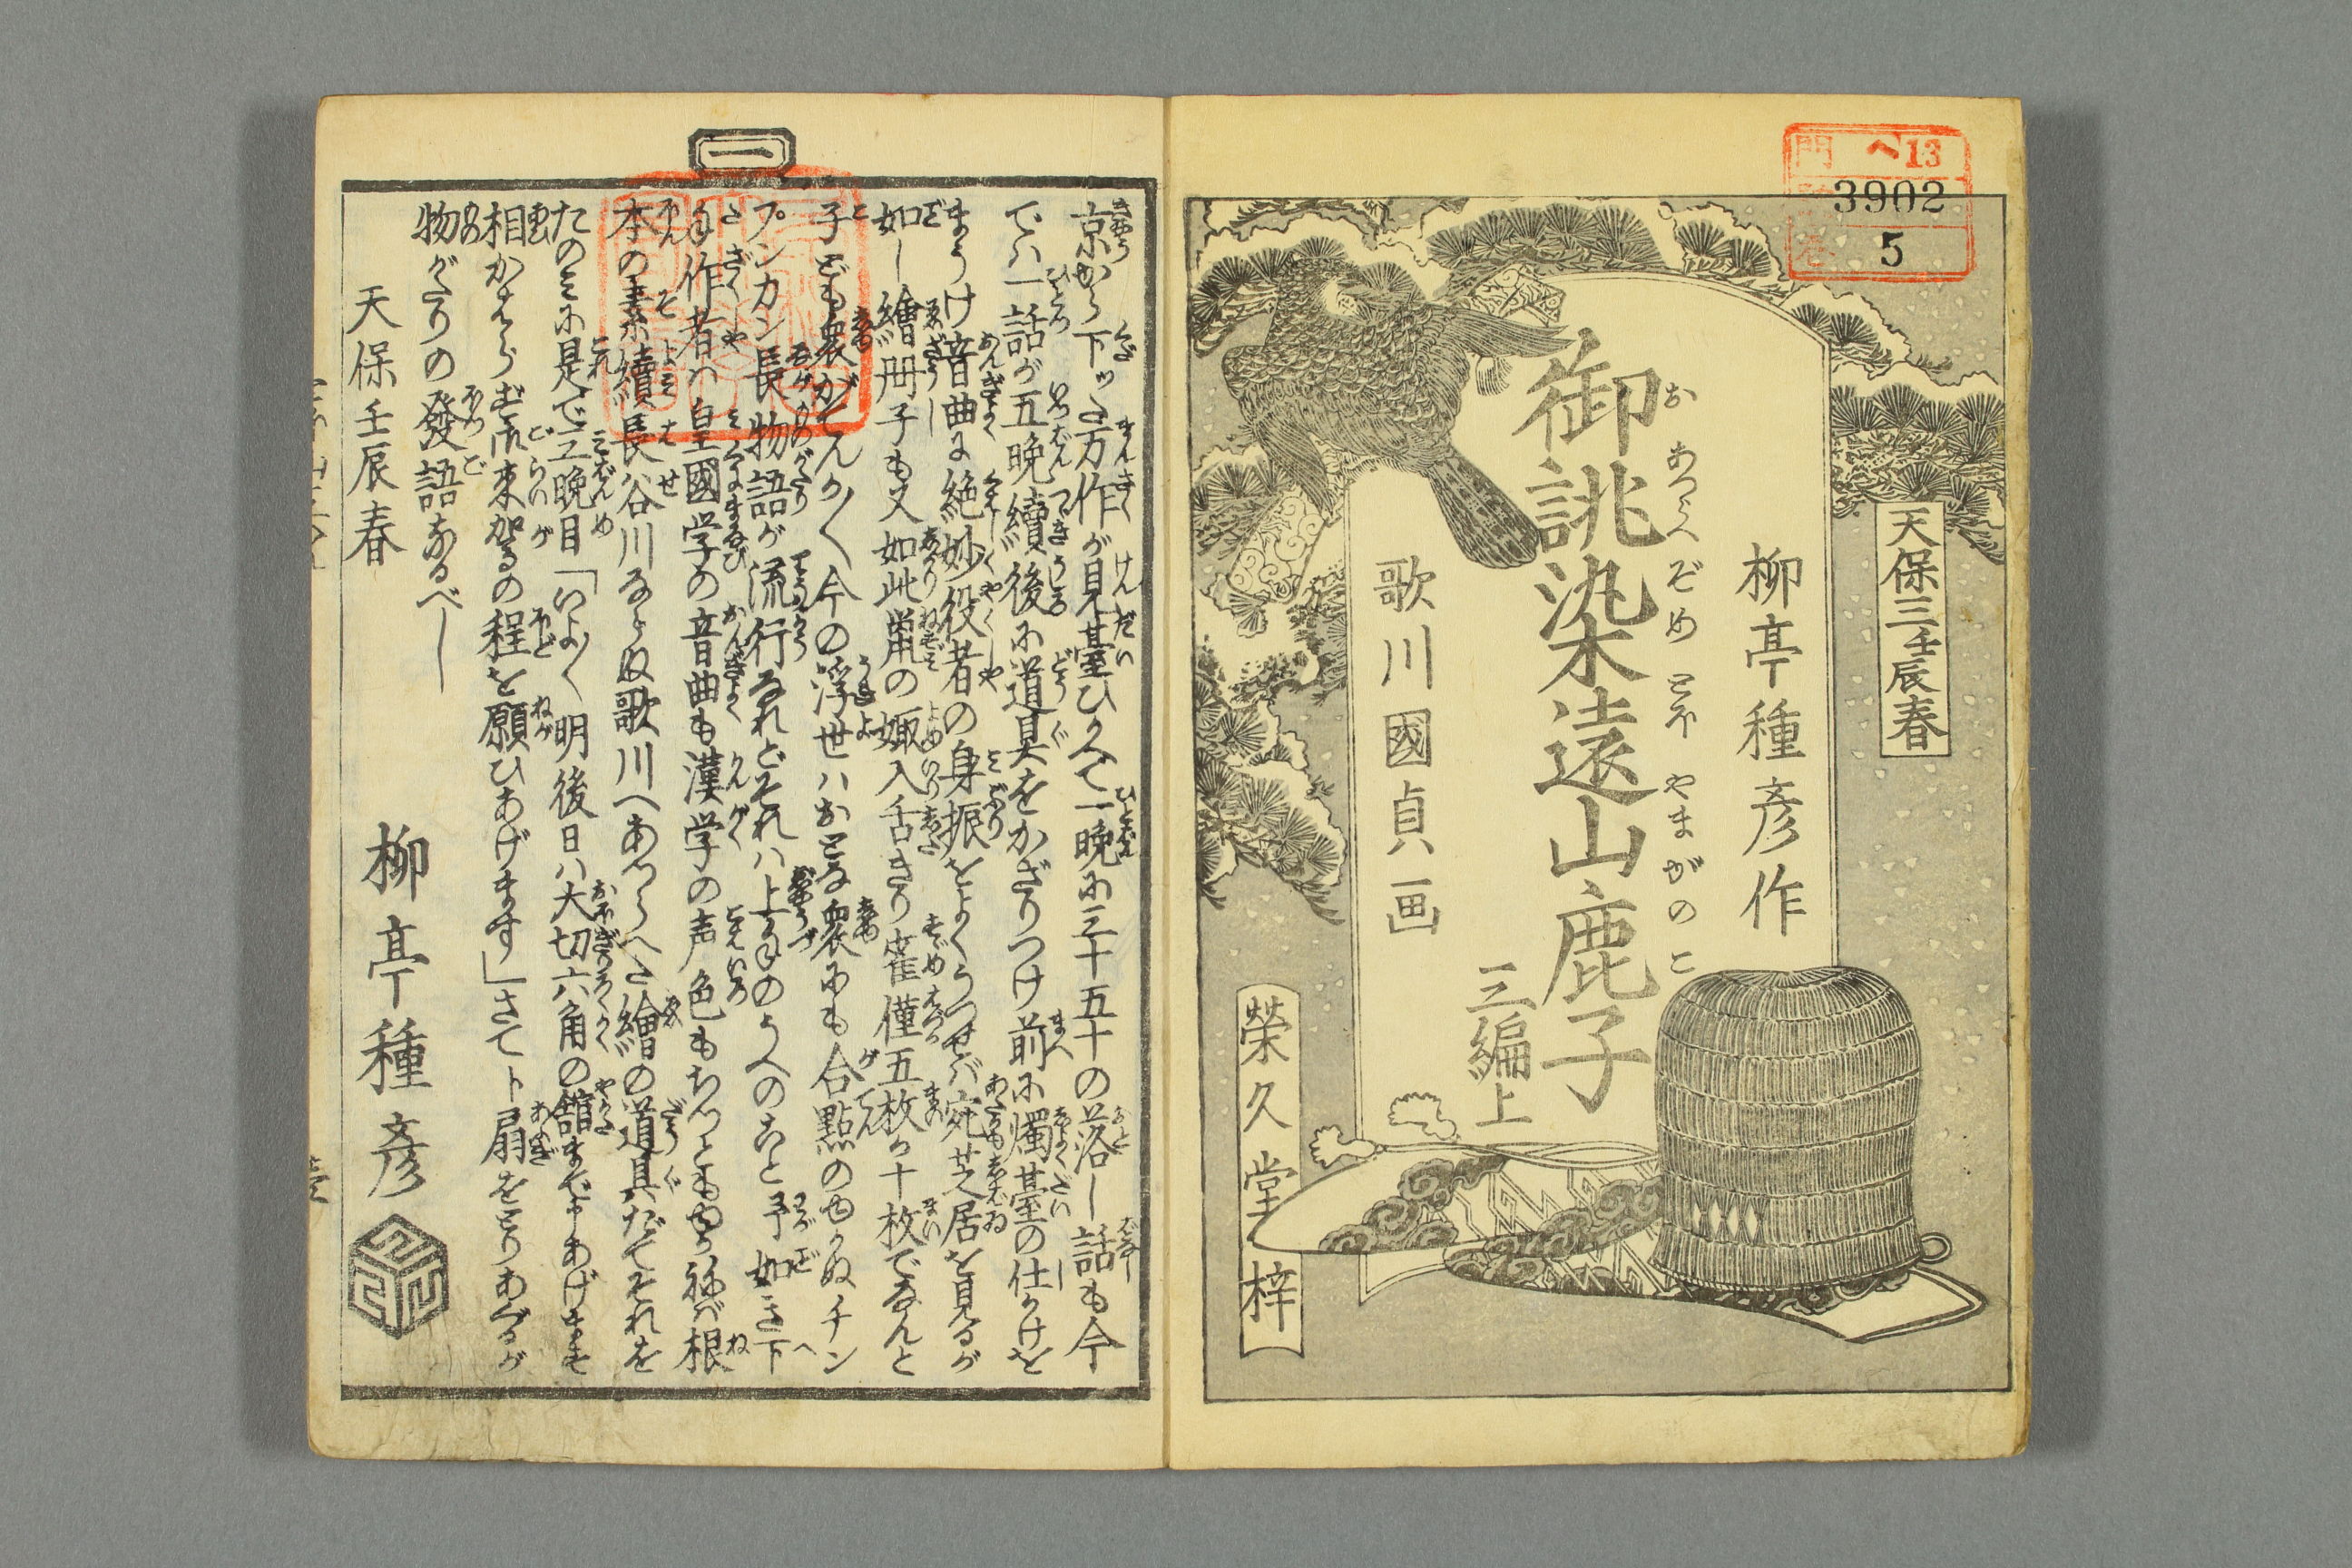 門 ヘ13
3902
5
天保三壬辰春
柳亭種彦作
お あつらへ ぞめ とほ やま がの こ
御誂染遠山鹿子
三編上
歌川國貞画
榮久堂梓
一
京から下ッた万作が見臺ひかへて一晩に三十五十の落し話も今
では一話が五晩續後に道具をかざりつけ前に燭臺の仕かけを
まうけ音曲に絶妙役者の身振をよくうつせバ宛芝居を見るが
如し繪册子も又如此鼠の娵入舌きり雀僅五枚か十枚でなんと
子ども衆がてんか〱今の浮世ハおとな衆にも合點のゆかぬチン
プンカン長物語が流行なれどそれハ上手のうへのこと予如き下
手作者ハ皇國学の音曲も漢学の声色もちつともゆかねバ根
本の素續長谷川ならぬ歌川へあつらへた繪の道具だてそれを
たのみに是で三晩目「いよ〱明後日ハ大切六角の舘まで申あげます
相かはらず御來駕の程を願ひあげます」さてト扇をとりあぐるが
物がたりの發語なるべし
天保壬辰春
柳亭種彦